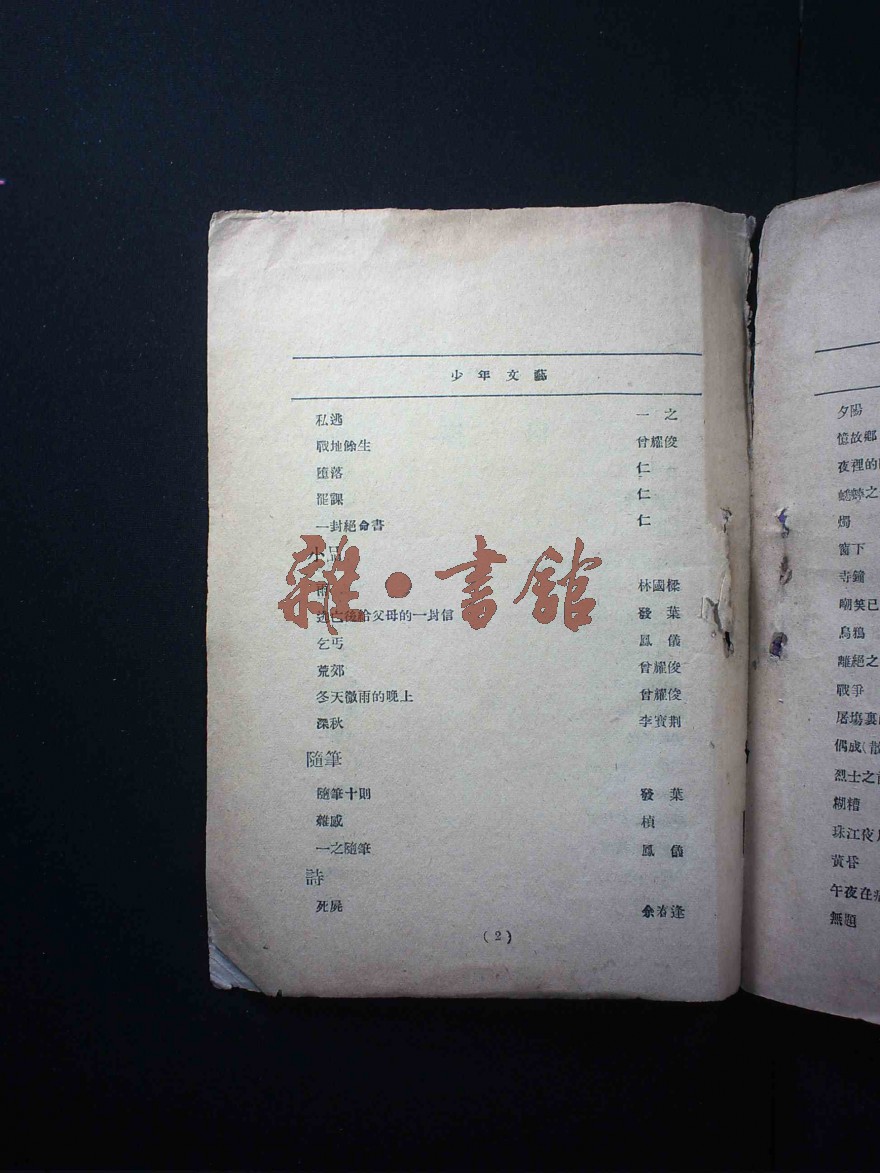 少年文藝
私逃 一之
戰地餘生 曾耀俊
墮落 仁
罷課 仁
一封絕命書 仁
小品
雨 林國樑
逃亡後給父母的一封信 發葉
乞丐 鳳儀
荒郊 曾耀俊
冬天微雨的晚上 曾耀俊
深秋 李寳荆
隨筆
隨筆十則 發葉
雜感 楨
一之隨筆 鳳儀
詩
死屍 余春逢
(2)
雜·書館
夕陽
憶故鄉
夜裡的
蟋蟀之
燭
窗下
寺鐘
嘲笑已
烏鴉
離絕之
戰爭
屠塲裏
偶成(散
烈士之
糊糟
珠江夜
黃昏
午夜在
無題